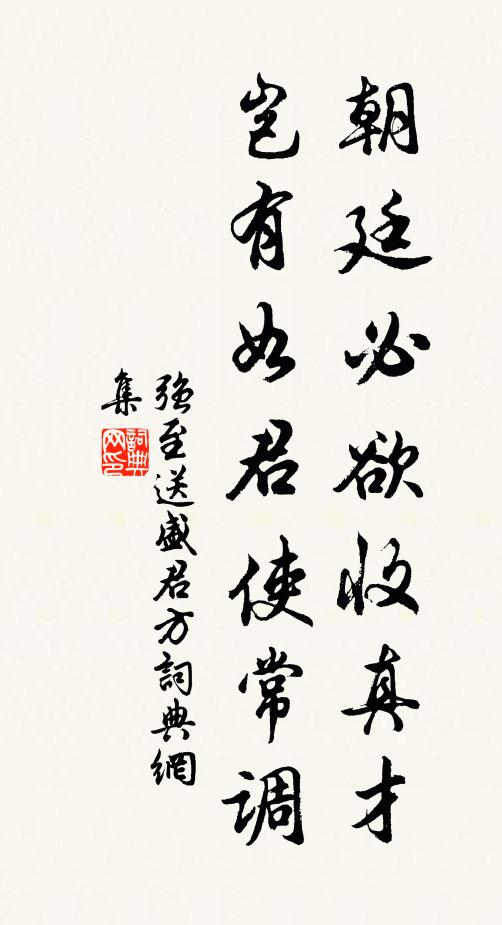 朝廷必欲收真才
岂有如君使常调
強至送盛君方詞典網
集
詞典
网印